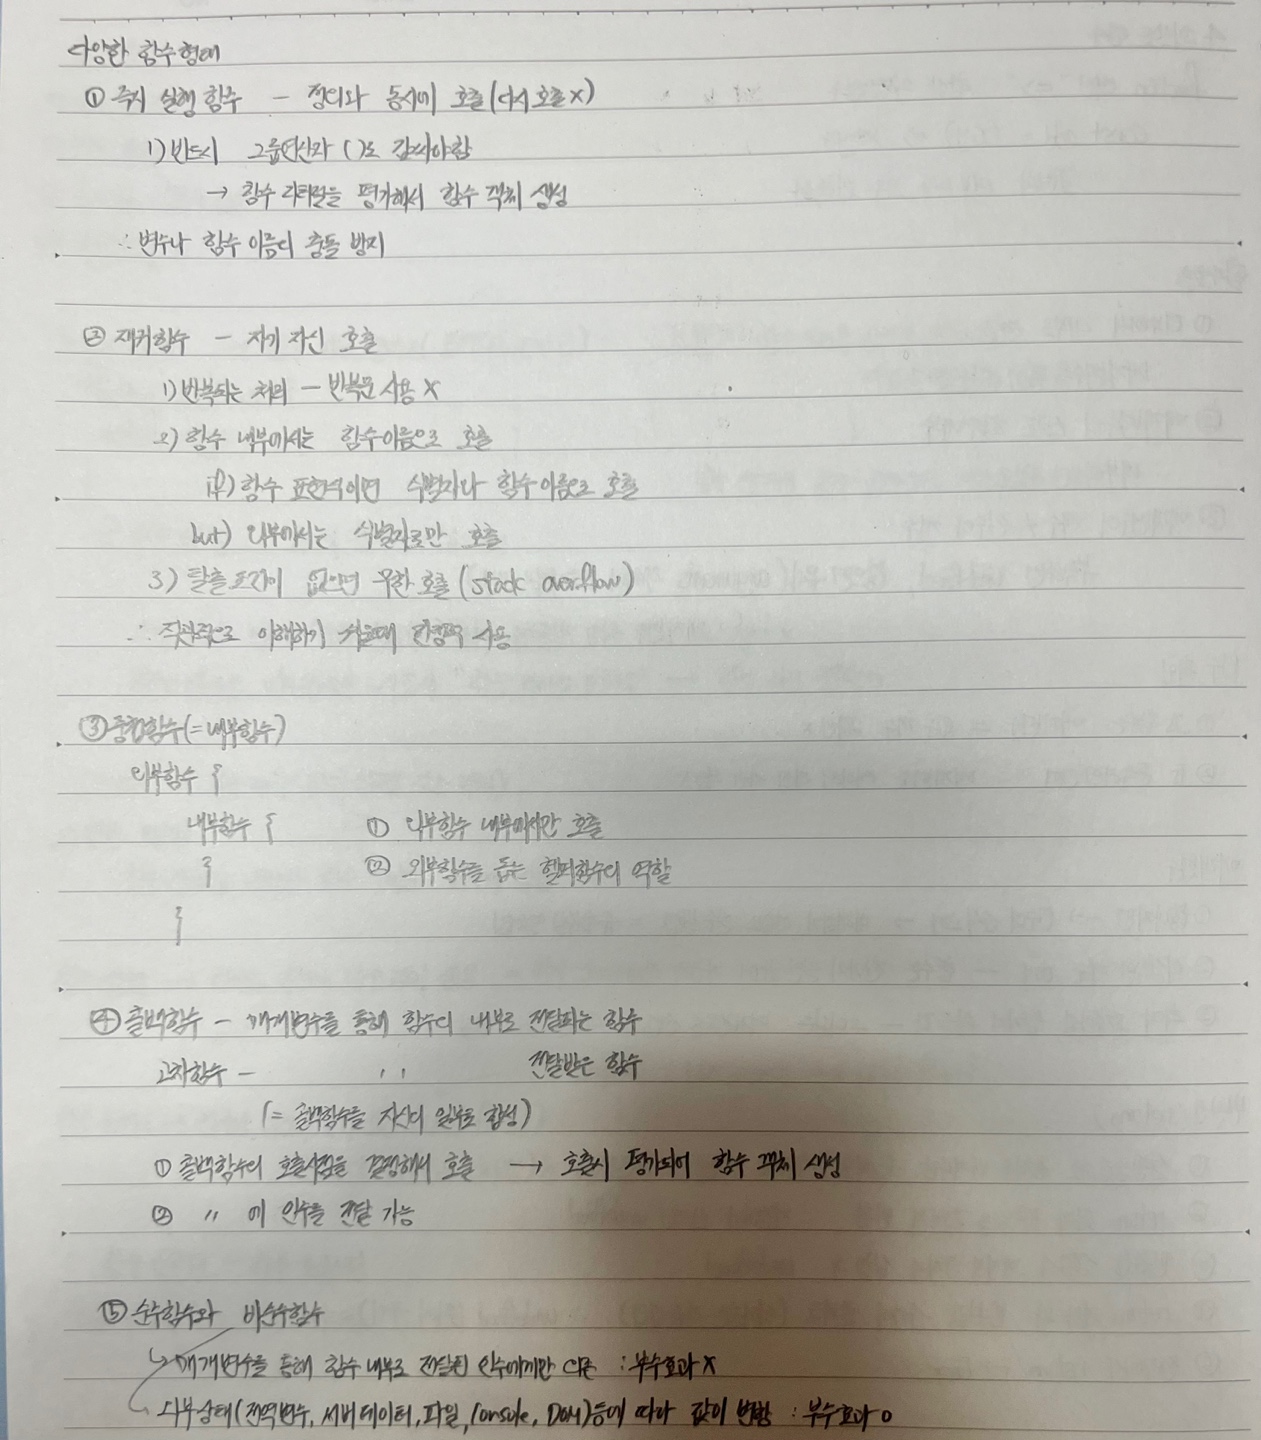 다양한 함수형태
① 즉시 실행 함수 - 정의와 동시에 호출(다시 호출 X)
1) 반드시 그룹연산자 ( )로 감싸야함
→ 함수 리터럴을 평가해서 함수 객체 생성
∴ 변수나 함수 이름의 충돌 방지
② 재귀함수 - 자기 자신 호출
1) 반복되는 처리 - 반복문 사용 X
2) 함수 내부에서는 함수이름으로 호출
if) 함수 표현식이면 식별자나 함수이름으로 호출
but) 외부에서는 식별자로만 호출
3) 탈출 조건이 없으면 무한 호출 (stack overflow)
∴ 직관적으로 이해하기 쉬울때 한정적 사용
③ 중첩함수(=내부함수)
외부함수 {
내부함수 { ① 외부함수 내부에서만 호출
} ② 외부함수를 돕는 헬퍼함수의 역할
}
④ 콜백함수 - 매개변수를 통해 함수의 내부로 전달되는 함수
고차함수 - '' 전달받은 함수
(= 콜백함수를 자신의 일부로 합성)
① 콜백함수의 호출시점을 결정해서 호출 → 호출시 평가되어 함수 객체 생성
② '' 에 인수를 전달 가능
⑤ 순수함수와 비순수함수
매개변수를 통해 함수 내부로 전달된 인수에게만 의존 : 부수효과 X
외부상태(전역변수, 서버데이터, 파일, Console, DOM)등에 따라 값이 변함 : 부수효과 O